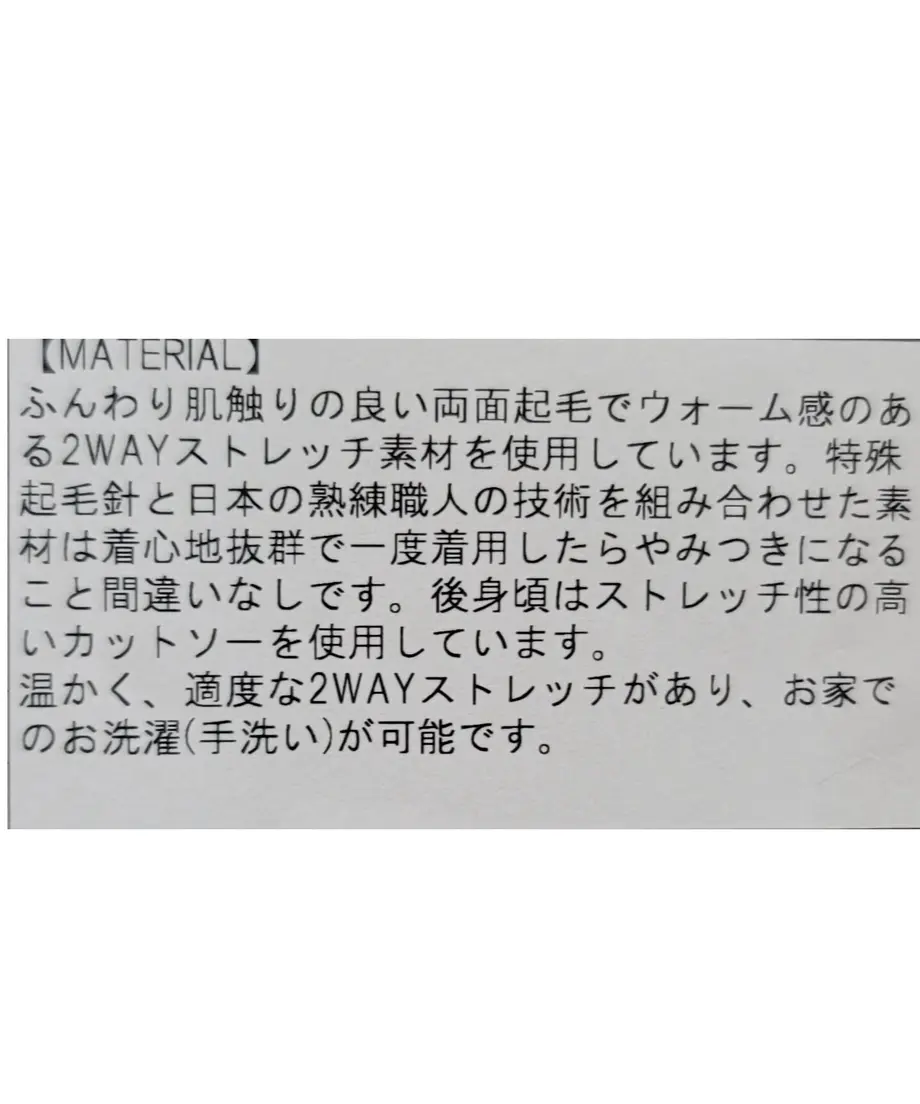 【MATERIAL】
ふんわり肌触りの良い両面起毛でウォーム感のあ
る2WAYストレッチ素材を使用しています。特殊
起毛針と日本の熟練職人の技術を組み合わせた素
材は着心地抜群で一度着用したらやみつきになる
こと間違いなしです。後身頃はストレッチ性の高
いカットソーを使用しています。
温かく、適度な2WAYストレッチがあり、お家で
のお洗濯(手洗い)が可能です。